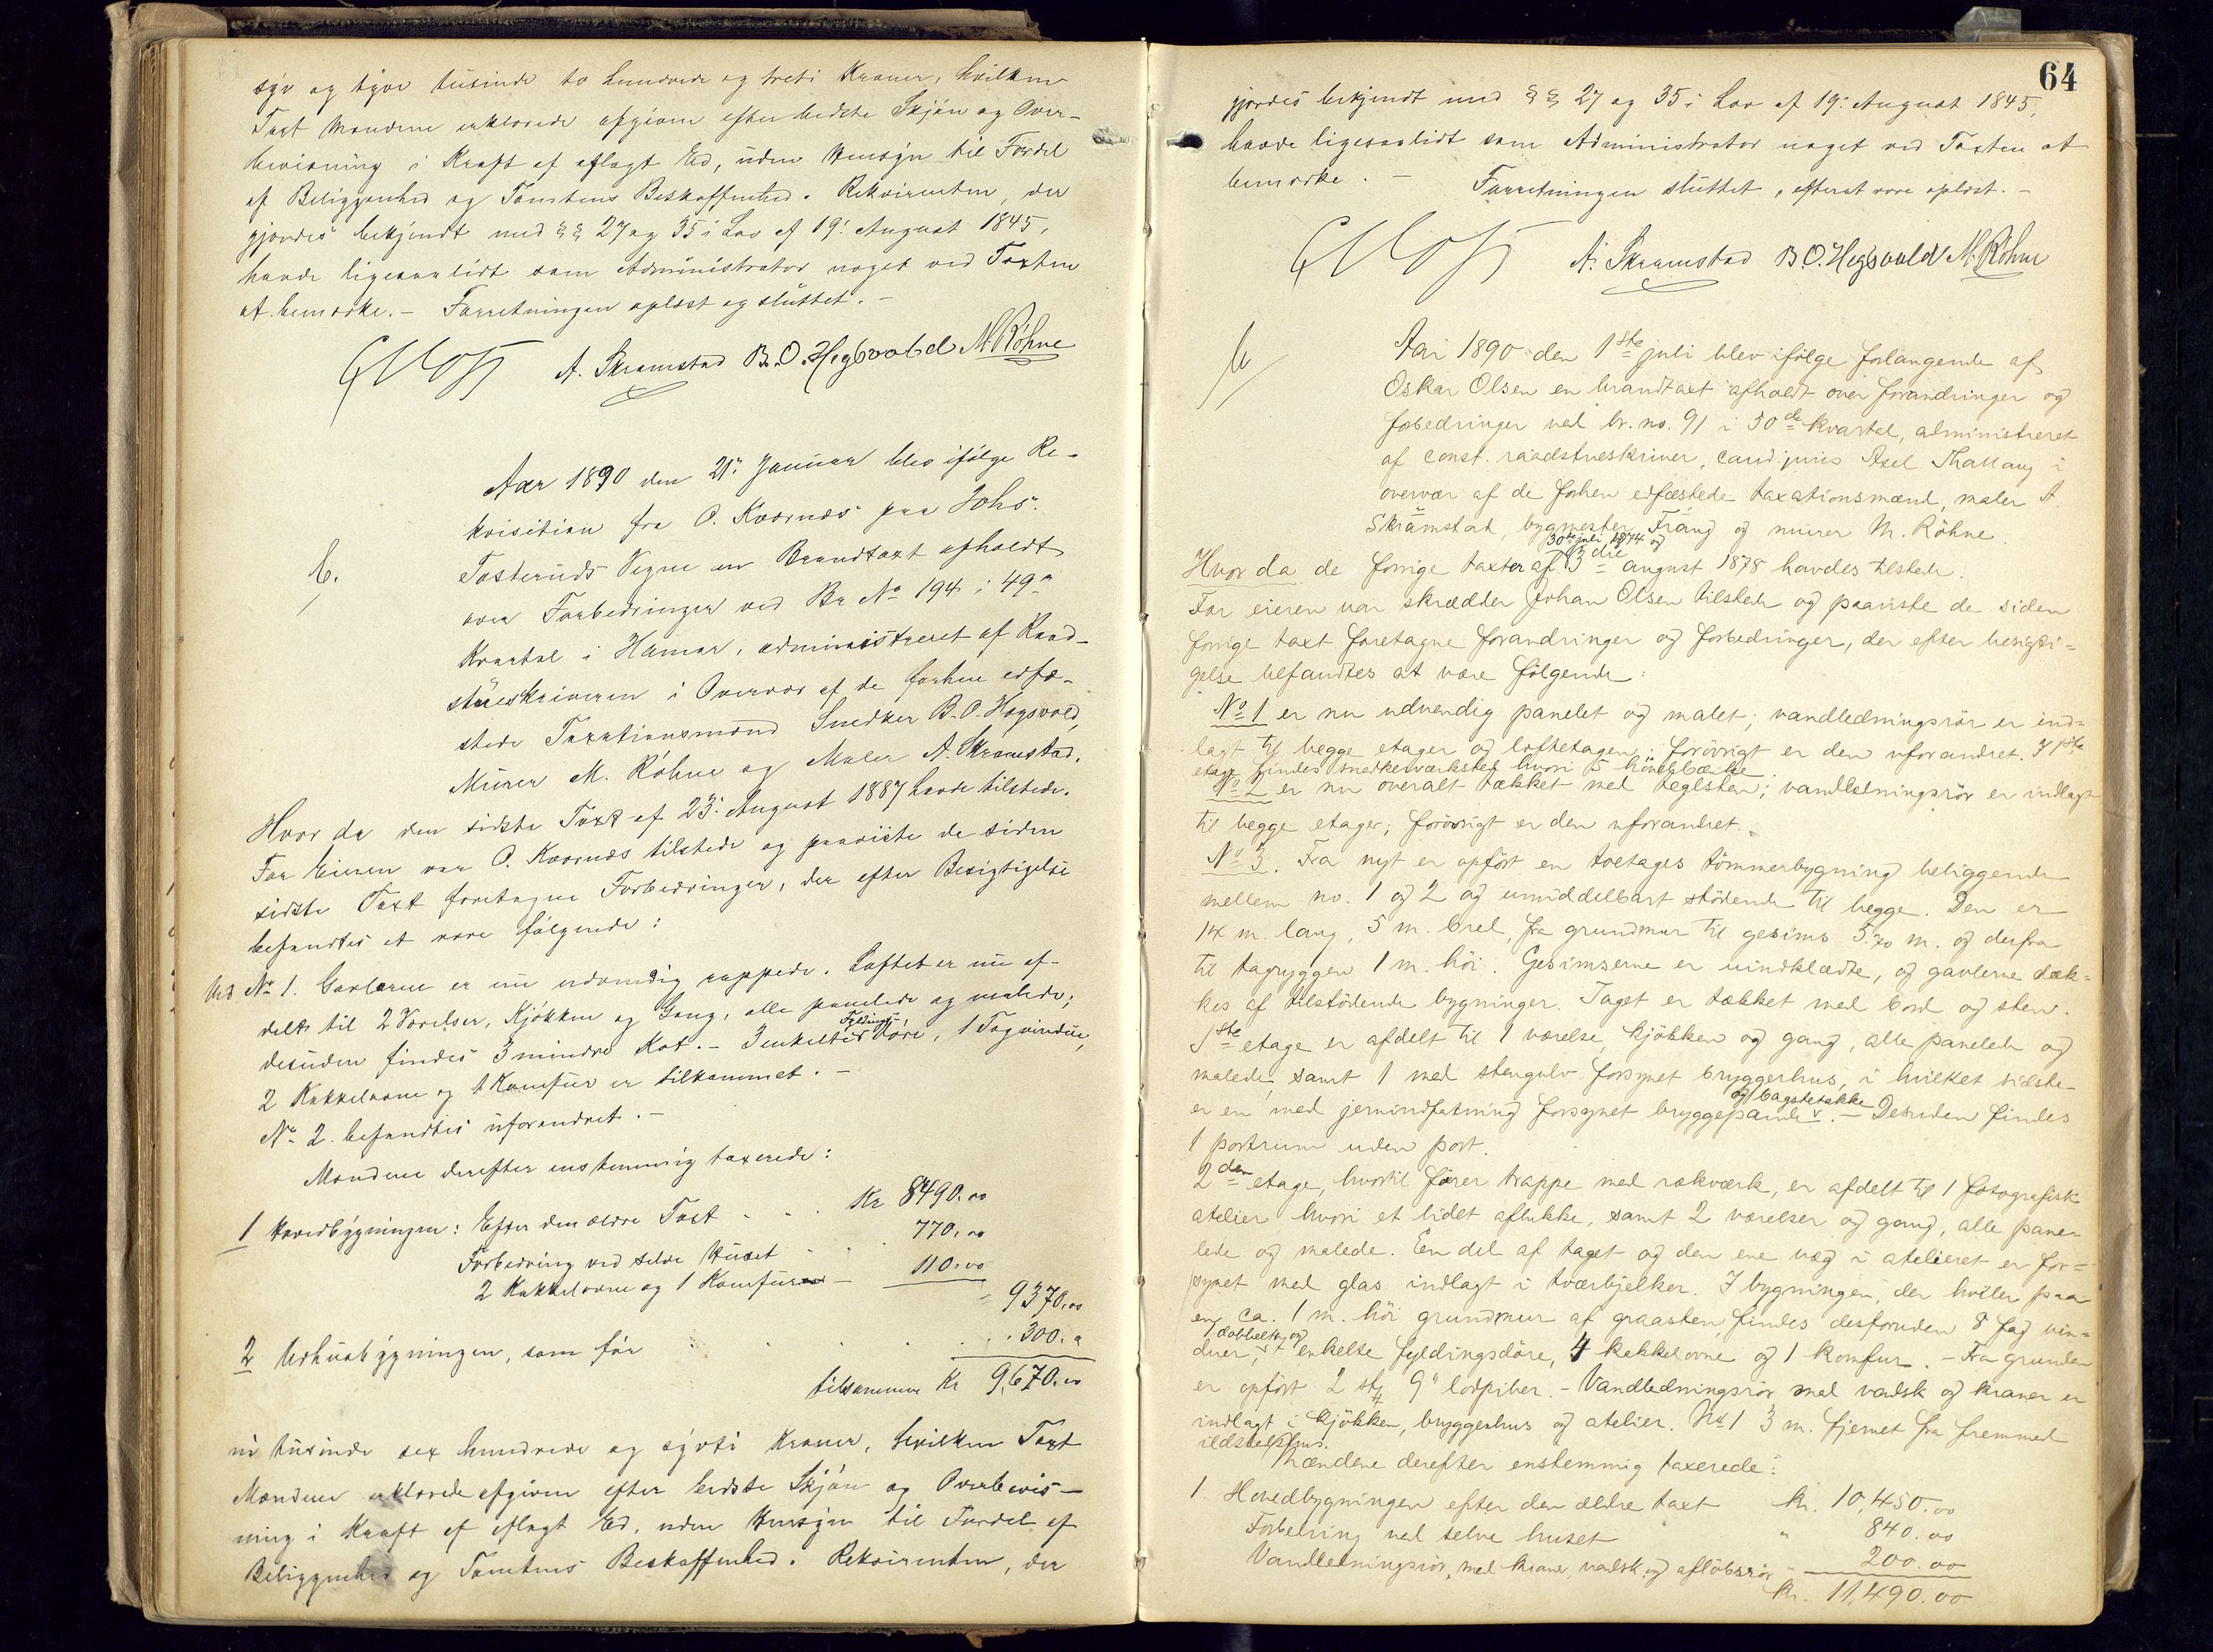 syv og tyve tusinde to hundrede og treti Kroner, hvilken
Taxt Mændene erklærede afgiven efter bedste Skjøn og Over-
bevisning i Kraft af aflagt Ed, uden Hensyn til Fordel
af Beliggenhed og Tomtens Beskaffenhed. Rekvirenten, der
gjordes bekjendt med §§ 27 og 35 i Lov af 19: August 1845,
havde ligesaalidt som Administrator noget ved Taxten
at bemærke. – Forretningen oplæst og sluttet. –
A. Skramstad B. O. Hegsvold M. Röhne
Aar 1890 den 21: Januar blev ifølge Re-
kvisition fra O. Kværnæs paa Johs.
Tosteruds Vegne en Brandtaxt afholdt
over Forbedringer ved Br No 194 i 49:
Kvartal i Hamar, administreret af Raad-
stueskriveren i Overvær af de forhen edfæ-
stede Taxationsmænd Snedker B. O. Hegsvold,
Murer M. Röhne og Maler A. Skramstad.
Hvor da den sidste Taxt af 23: August 1887 havdes tilstede.
For Eieren var O. Kværnæs tilstede og paaviste de siden
sidste Taxt foretagne Forbedringer, der efter Besigtigelse
befandtes at være følgende:
Ved No 1. Gavlerne er nu udvendig rappede. Loftet er nu af-
delt til 2 Værelser, Kjøkken og Gang, alle panelede og malede;
desuden findes 3 mindre Kot. – 3 enkelte Fyldings Döre, 1 Tagvindue,
2 Kakkelovne og 1 Komfur er tilkommet. –
No 2. befandtes uforandret. –
Mændene derefter enstemmig taxerede:
1 Hovedbygningen: Efter den ældre Taxt - - Kr 8490.00
Forbedring ved selve Huset - - 770.00
2 Kakkelovne og 1 Komfur – 110.00
9370.00
2 Udhusbygningen, som før . . . . 300.00
tilsammen Kr 9,670.00
ni tusinde sex hundrede og syvti Kroner, hvilken Taxt
Mændene erklærede afgiven efter bedste Skjøn og Overbevis-
ning i Kraft af aflagt Ed, uden Hensyn til Fordel af
Beliggenhed og Tomtens Beskaffenhed. Rekvirenten, der
64
gjordes bekjendt med §§ 27 og 35 i Lov af 19: August 1845,
havde ligesaalidt som Administrator noget ved Taxten at
bemærke. – Forretningen sluttet, efterat være oplæst. –
A. Skramstad B. O. Hegsvold M. Röhne
Aar 1890 den 1ste juli blev ifølge forlangende af
Oskar Olsen en brandtaxt afholdt over forandringer og
forbedringer ved br. no. 91 i 50de kvartal, administreret
af const. raadstueskriver, cand. juris Axel Thallaug i
overvær af de forhen edfæstede taxationsmænd, maler A.
Skramstad, bygmester Frang og murer M. Röhne.
30te juli 1874 og
Hvor da de forrige taxter af 3die august 1878 havdes tilstede.
For eieren var skrædder Johan Olsen tilstede og paaviste de siden
forrige taxt foretagne forandringer og forbedringer, der efter besigti=
gelse befandtes at være følgende:
No 1 er nu udvendig panelet og malet; vandledningsrör er ind=
lagt til begge etager og loftetagen; forövrigt er den uforandret. I 1ste
etage findes snedkerværksted hvori 5 hövelbænke
No 2 er nu overalt tækket med teglsten; vandledningsrör er indlagt
til begge etager; forövrigt er den uforandret.
No 3. Fra nyt er opfört en toetages tömmerbygning beliggende
mellem no. 1 og 2 og umiddelbart stödende til begge. Den er
14 m. lang, 5 m. bred, fra grundmur til gesims 5.70 m. og derfra
til tagryggen 1 m. höi. Gesimserne er uindklædte, og gavlerne dæk=
kes af tilstödende bygninger. Taget er tækket med bord og sten.
1ste etage er afdelt til 1 værelse, kjökken og gang, alle panelede og
malede, samt 1 med stengulv forsynet bryggerhus, i hvilket sidste
er en med jernindfatning forsynet bryggepande og bagstetakke. – Desuden findes
1 portrum uden port.
2den etage, hvortil förer trappe med rækværk, er afdelt til 1 fotografisk
atelier hvori et lidet aflukke, samt 2 værelser og gang, alle pane-
lede og malede. En del af taget og den ene væg i atelieret er for=
synet med glas indlagt i tværbjelker. I bygningen, der hviler paa
en ca. 1 m. höi grundmur af graasten, findes desforuden 8 fag vin=
duer, dobbelte og enkelte fyldingsdöre, 4 kakkelovne og 1 komfur. – Fra grunden
er opfört 2 stk 9" lodpiber. – Vandledningsrör med vadsk og kraner er
indlagt i kjökken, bryggerhus og atelier. No 1 3 m. fjernet fra fremmed
ildstedshus.
Mændene derefter enstemmig taxerede:
1. Hovedbygningen efter den ældre taxt kr. 10,450.00
Forbedring ved selve huset " 840.00
Vandledningsrör, med kraner, vadsk og aflöbsrör - 200.00
kr. 11,490.00